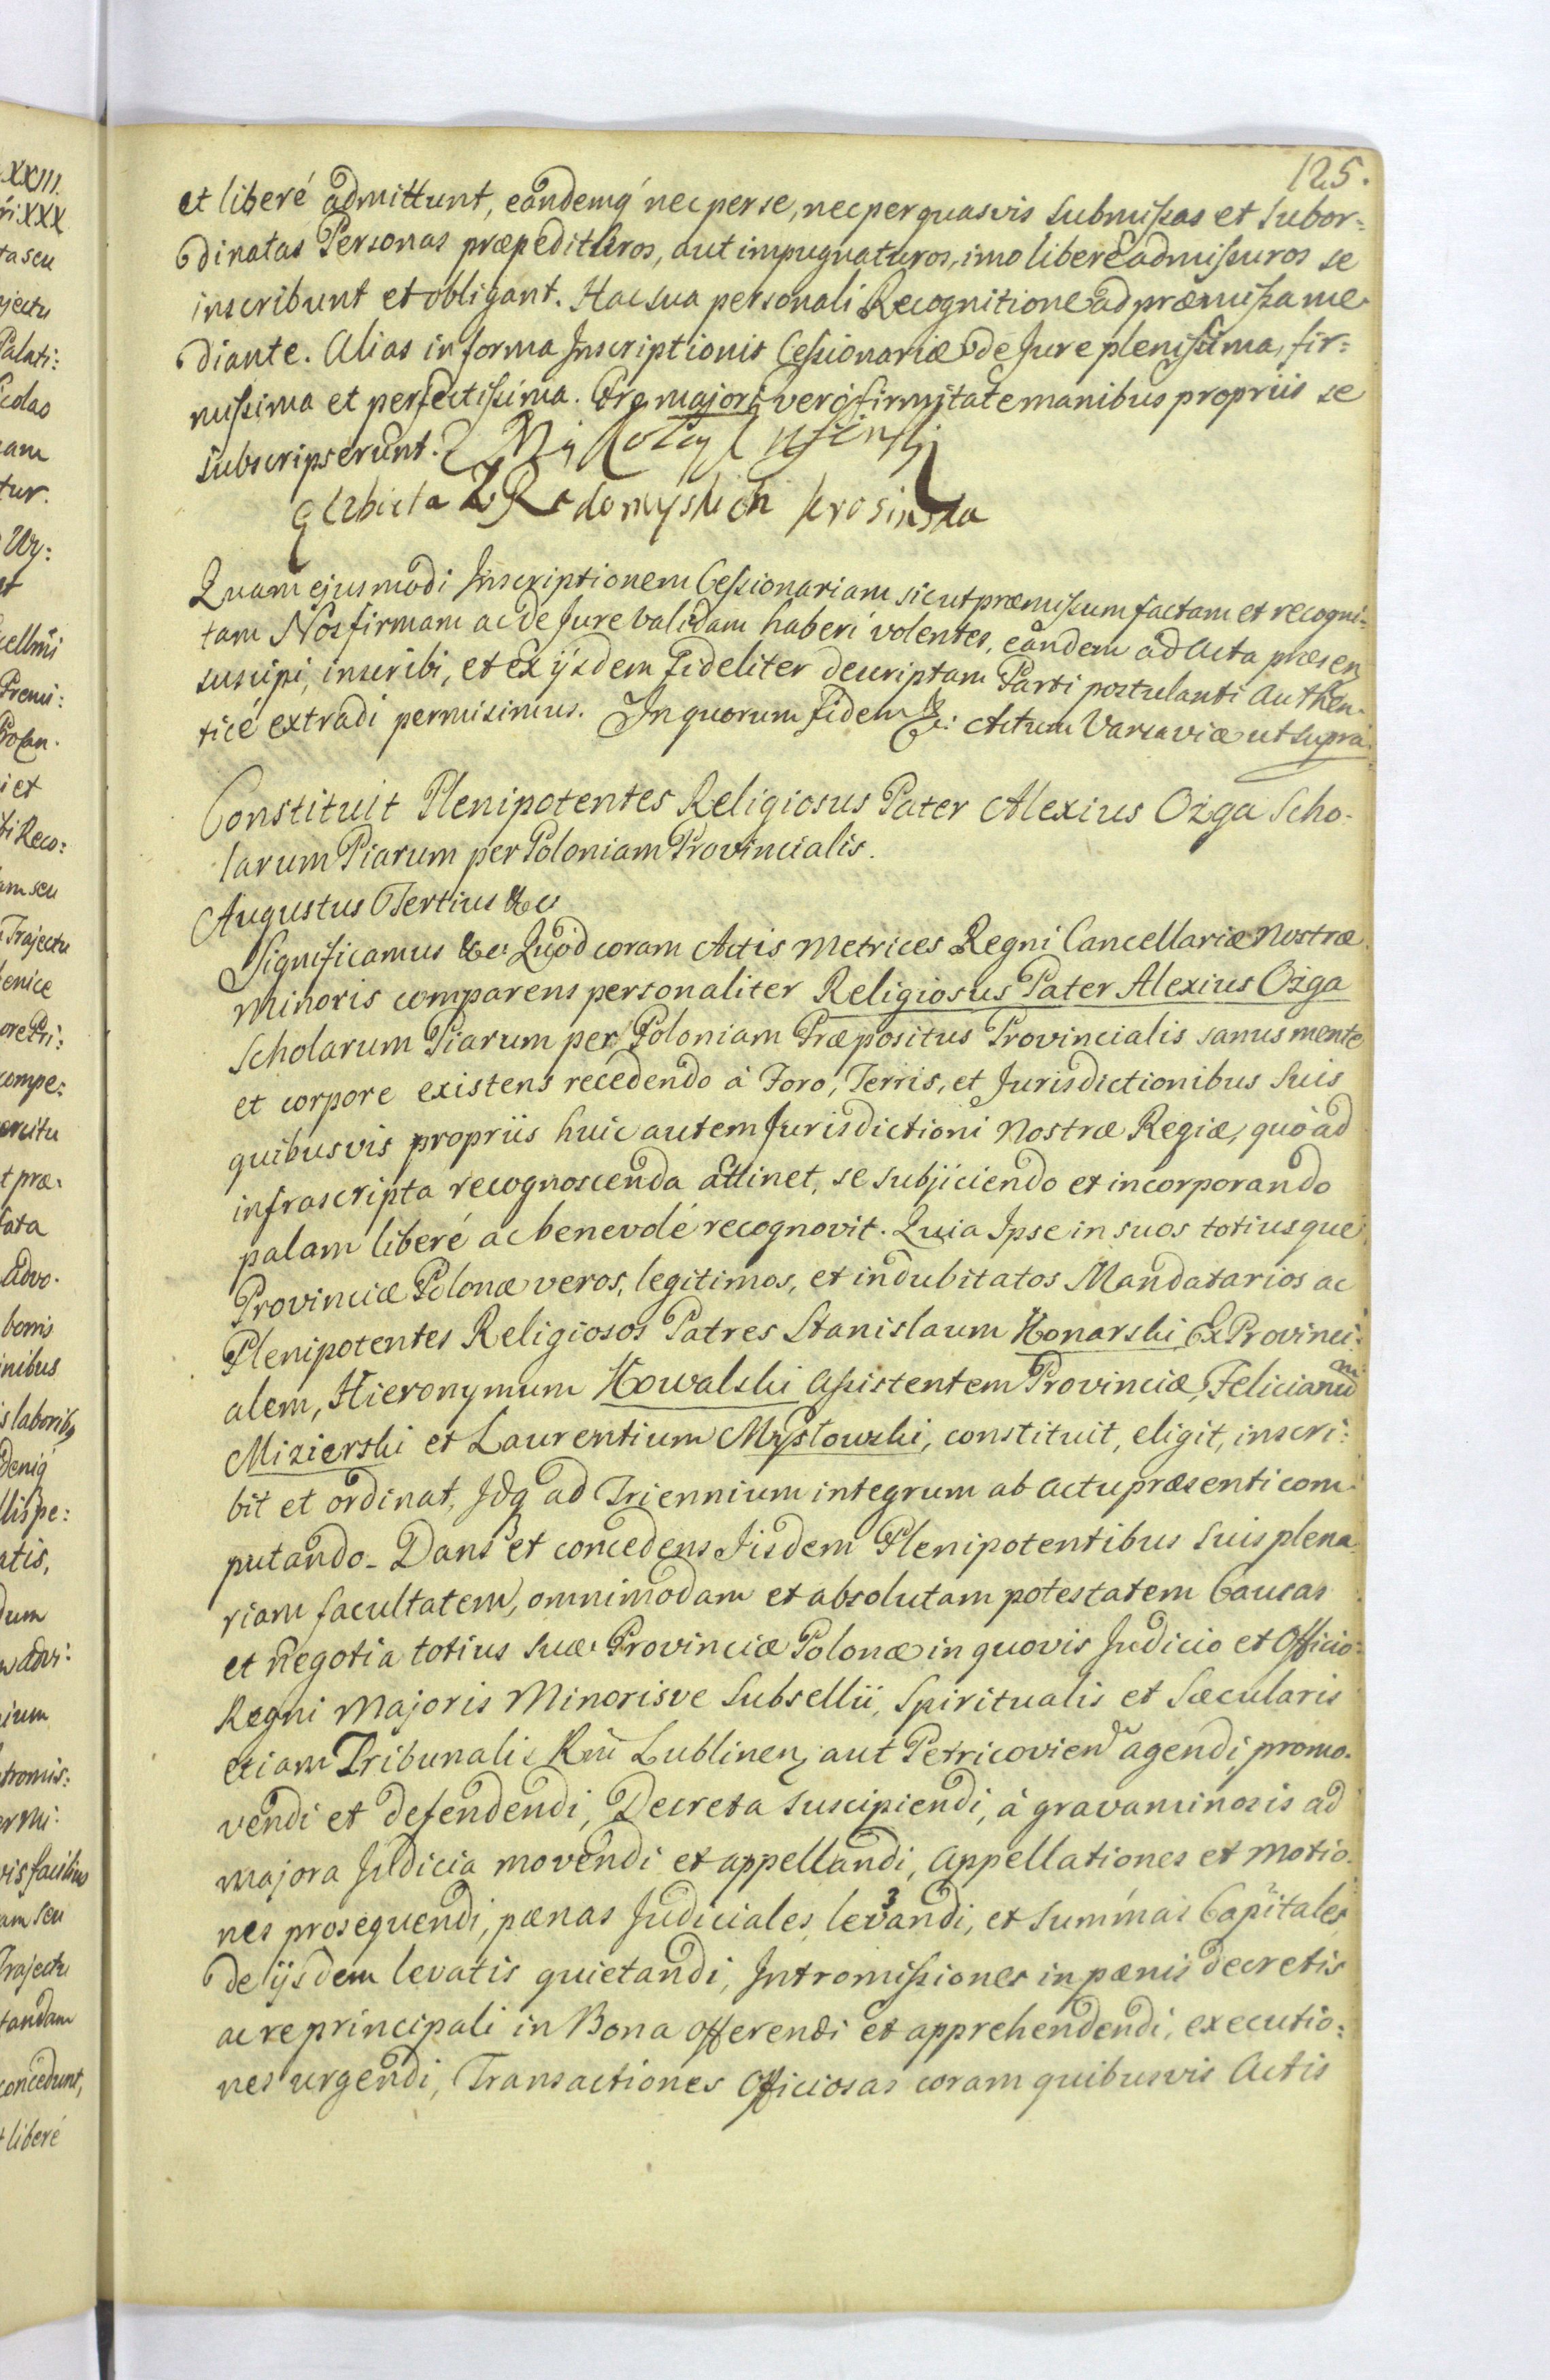 125.
et liberé admittunt, eandemq́ nec per se, nec per quasvis submissas et subor=
dinatas Personas præpedituros, aut impugnaturos, imo liberé admissuros se
inscribunt et obligant. Hac sua personali Recognitione ad præmissa me
diante. Alias in forma Inscriptionis Cessionariæ de Jure plenissima, fir=
missima et perfectissima. Pro majori veró firmitate manibus propriis se
subscripserunt.
Elzbieta Z Radomyskich krosinska
Quam ejusmodi Inscriptionem Cessionariam sicut præmissum factam et recogni=
tam Nos firmam ac de Jure validam haberi volentes, eandem ad Acta præsen
suscipi, inscribi, et ex ijsdem fideliter descriptam Parti postulanti Authen=
ticé extradi permisimus. In quorum fidem &c: Actum Varsaviæ ut supra.
Constituit Plenipotentes Religiosus Pater Alexius Ożga Scho=
larum Piarum per Poloniam Provincialis.
Augustus Tertius &c
Significamus &c. Quód coram Actis Metrices Regni Cancellariæ Nostræ
Minoris comparens personaliter Religiosus Pater Alexius Ożga
Scholarum Piarum per Poloniam Præpositus Provincialis sanus mente
et corpore existens recedendo á Foro, Terris, et Jurisdictionibus suis
quibusvis propriis huic autem Jurisdictioni Nostræ Regiæ, quó ad
infrascripta recognoscenda attinet, se subjiciendo et incorporando
palam liberé ac benevolé recognovit. Quia Ipse in suos totiusque
Provinciæ Polonæ veros, legitimos, et indubitatos Mandatarios ac
Plenipotentes Religiosos Patres Stanislaum Konarski Ex Provinci=
alem, Hieronymum Kowalski Assistentem Provinciæ, Felicianum
Mizierski et Laurentium Mysłowski, constituit, eligit, inscri=
bit et ordinat, Idq ad Triennium integrum ab actu præsenti com=
putando. Dans et concedens Iisdem Plenipotentibus suis plena
riam facultatem, omnimodam et absolutam potestatem Causas
et Negotia totius suæ Provinciæ Polonæ in quovis Judicio et Officio
Regni Majoris Minorisve Subsellii, Spiritualis et Sæcularis
etiam Tribunalis Rni Lublinen, aut Petricovien agendi, promo=
vendi et defendendi, Decreta suscipiendi, á gravaminosis ad
majora Judicia movendi et appellandi, Appellationes et motio=
nes prosequendi, pænas Judiciales levandi, et summas Capitales
de ijsdem levatis quietandi, Intromissiones in pænis decretis
ac re principali in Bona offerendi et apprehendendi, executio=
nes urgendi, Transactiones Officiosas coram quibusvis Actis